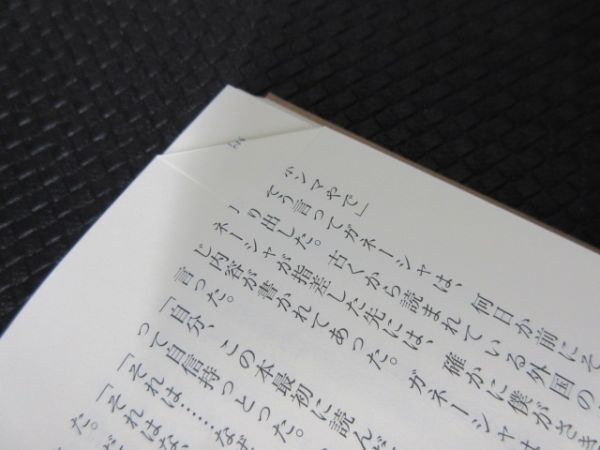 ジマやで」
そう言ってガネーシャは、何日か前にそ
り出した。古くから読まれている外国の
ネーシャが指差した先には、確かに僕がさき
じ内容が書かれてあった。ガネーシャは
言った。
「自分、この本最初に読んだ
って自信持っとった。
「それは……なぜ
「それはな、
た。